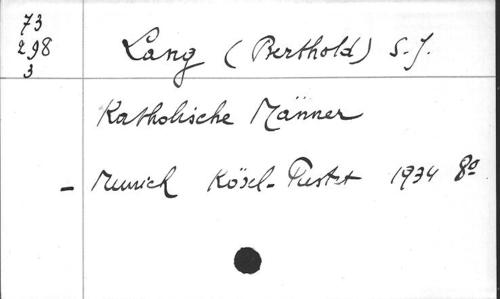 73
298
3
Lang (Berthold) S.J.
Katholische Männer
- Munich Kösel-Pustet 1934 8º